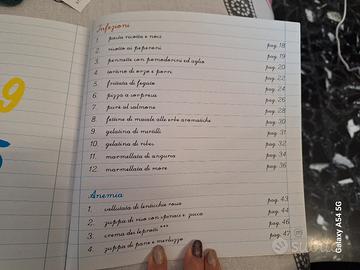 9
5
Infezioni
1. pasta ricotta e noci pag. 18
2. risotto ai peperoni pag. 19
3. pennette con pomodorini ed aglio pag. 20
4. tortino di orzo e porri pag. 22
5. frittata di fegato pag. 24
6. pizza a sorpresa pag. 26
7. purè al salmone pag. 28
8. fettine di maiale alle erbe aromatiche pag. 30
9. gelatina di mirtilli pag. 31
10. gelatina di ribes pag. 32
11. marmellata di anguria pag. 34
12. marmellata di more pag. 36
Anemia
1. vellutata di lenticchie rosse pag. 43
2. zuppa di riso con spinaci e zucca pag. 44
3. crema dei leprotti *** pag. 46
4. zuppa di pane e merluzzo pag. 47
Galaxy A54 5G
subito